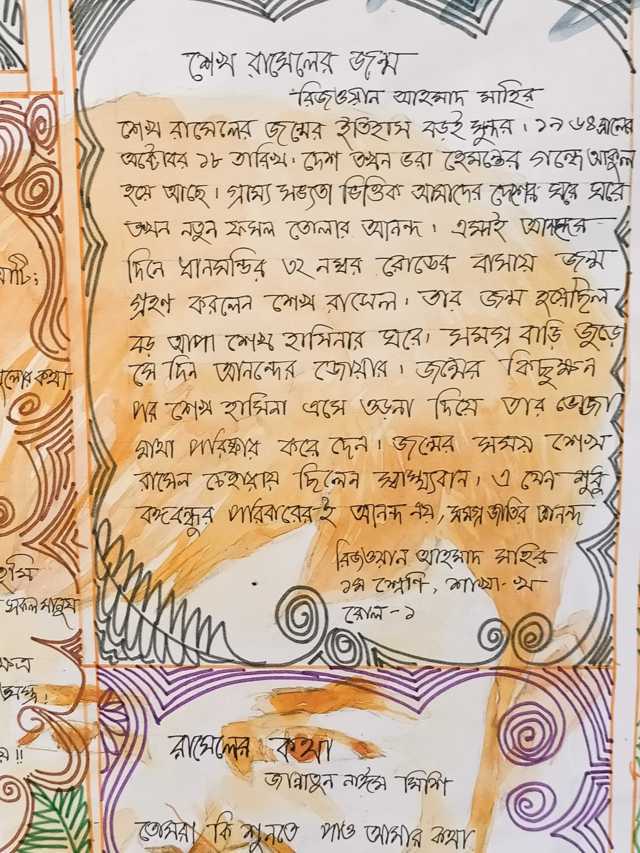 শেখ রাসেলের জন্ম
রিজওয়ান আহমাদ মাহির
শেখ রাসেলের জন্মের ইতিহাস বড়ই সুন্দর। ১৯৬৪ সালের
অক্টোবর ১৮ তারিখ। দেশ তখন ভরা হেমন্তের গন্ধে আকুল
হয়ে আছে। গ্রাম্য সভ্যতা ভিত্তিক আমাদের দেশের ঘরে ঘরে
তখন নতুন ফসল তোলার আনন্দ। এমনই আনন্দের
দিনে ধানমন্ডির ৩২ নম্বর রোডের বাসায় জন্ম
গ্রহণ করলেন শেখ রাসেল। তার জন্ম হয়েছিল
বড় আপা শেখ হাসিনার ঘরে। সমগ্র বাড়ি জুড়ে
সে দিন আনন্দের জোয়ার। জন্মের কিছুক্ষন
পর শেখ হাসিনা এসে ওড়না দিয়ে তার ভেজা
মাথা পরিষ্কার করে দেন। জন্মের সময় শেখ
রাসেল চেহারায় ছিলেন স্বাস্থ্যবান। এ যেন শুধু
বঙ্গবন্ধুর পরিবারেরই আনন্দ নয়, সমগ্র জাতির আনন্দ
রিজওয়ান আহমাদ মাহির
১ম শ্রেণি, শাখা-খ
রোল-১
রাসেলের কথা
জান্নাতুন নাইমে মিশি
তোমরা কি শুনতে পাও আমার কথা